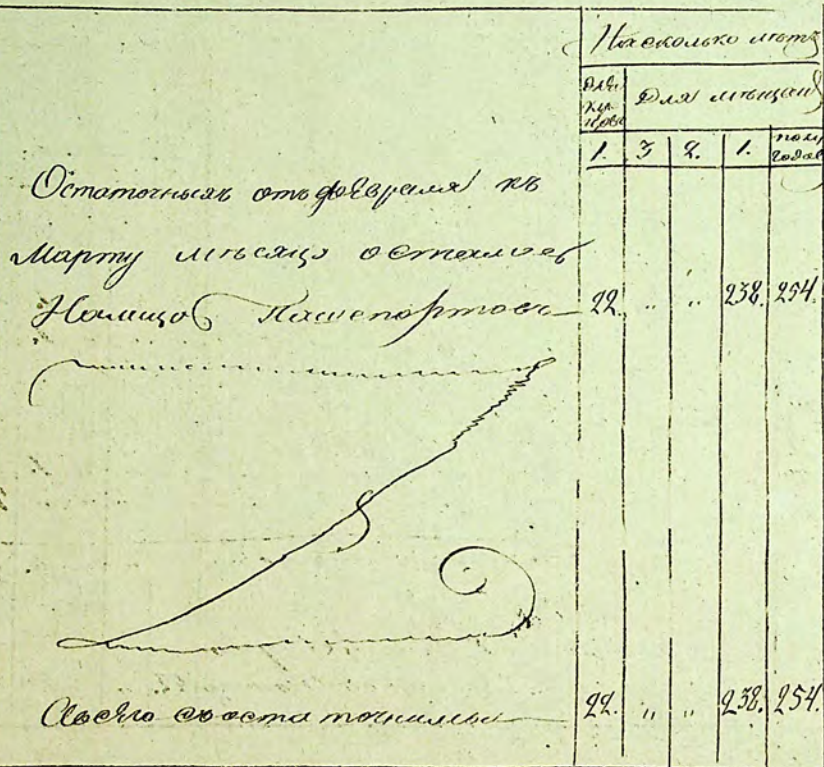 На сколько лѣтъ
для
ку
пцовъ
Для мѣщанъ
1. 3 2. 1. полу
годов
Остаточныхъ отъ февраля къ
Марту мѣсяцу осталось
На лицо Пашепортовъ 22. " " 238. 254.
А всего съ остаточными 22. " " 238. 254.